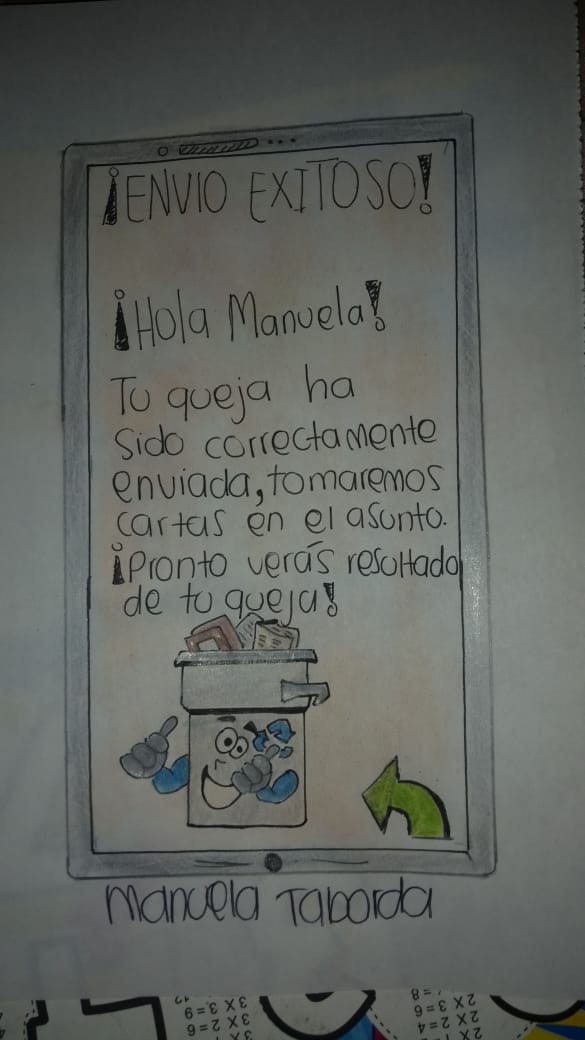 ¡ENVIO EXITOSO!
¡Hola Manuela!
Tu queja ha
sido correctamente
enviada, tomaremos
cartas en el asunto.
¡Pronto verás resultado
de tu queja!
Manuela Taborda
3 X 3 = 9
3 X 2 = 6
3X
2 X 3 = 6
2 X 2 = 4
2X